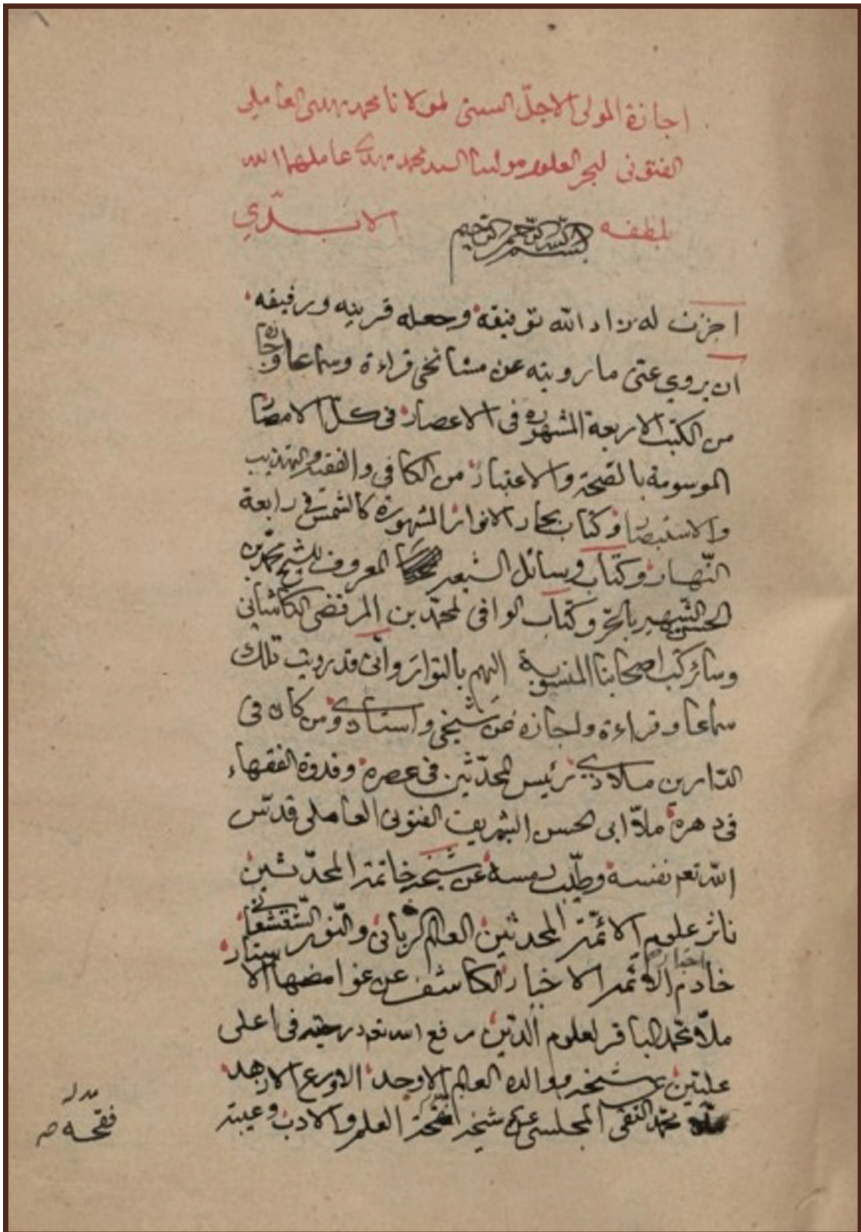 اجازة المولی الاجلّ السنی لمولانا محمد مهدی العاملی
الفتونی لبحر العلوم مولینا السید محمد مهدی عاملهما الله
بلطفه الابدی
بسم الله الرحمن الرحیم
اجزت له زاد الله توفیقه وجعله قرینه ورفیقه
ان یروی عنی ما رویته عن مشائخی قراءة وسماعا واجازة
من الکتب الاربعة المشهورة فی الاعصار فی کل الامصار
الموسومة بالصحة والاعتبار من الکافی والفقیه والتهذیب
والاستبصار وکتاب بحار الانوار المشهورة کالشمس فی رابعة
النهار وکتاب وسائل الشیعه المعروف للشیخ محمد بن
الحسن الشهیر بالحر وکتاب الوافی لمحمد بن المرتضی الکاشانی
وسائر کتب اصحابنا المنسوبة الیهم بالتواتر وانی قد رویت تلک
سماعا وقراءة واجازة عن شیخی واستادی ومن کان فی
الدارین ملاذی رئیس المحدّثین فی عصره وقدوة الفقهاء
فی دهره ملّا ابی الحسن الشریف الفتونی العاملی قدّس
الله تعم نفسه وطیّب رمسه عن شیخه خاتمة المحدّثین
ناشر علوم الائمّة المحدثین العالم الربانی والنور الشعشعانی
خادم اخبار الائمة الاخیار الکاشف عن غوامضها الاستار
ملّا محمد الباقر لعلوم الدّین رفع الله تعم درجته فی اعلی
علیّین عن شیخه ووالده العالم الاوحد الاورع الازهد
محمد التقی المجلسی عن شیخه العلم والادب وعیبة